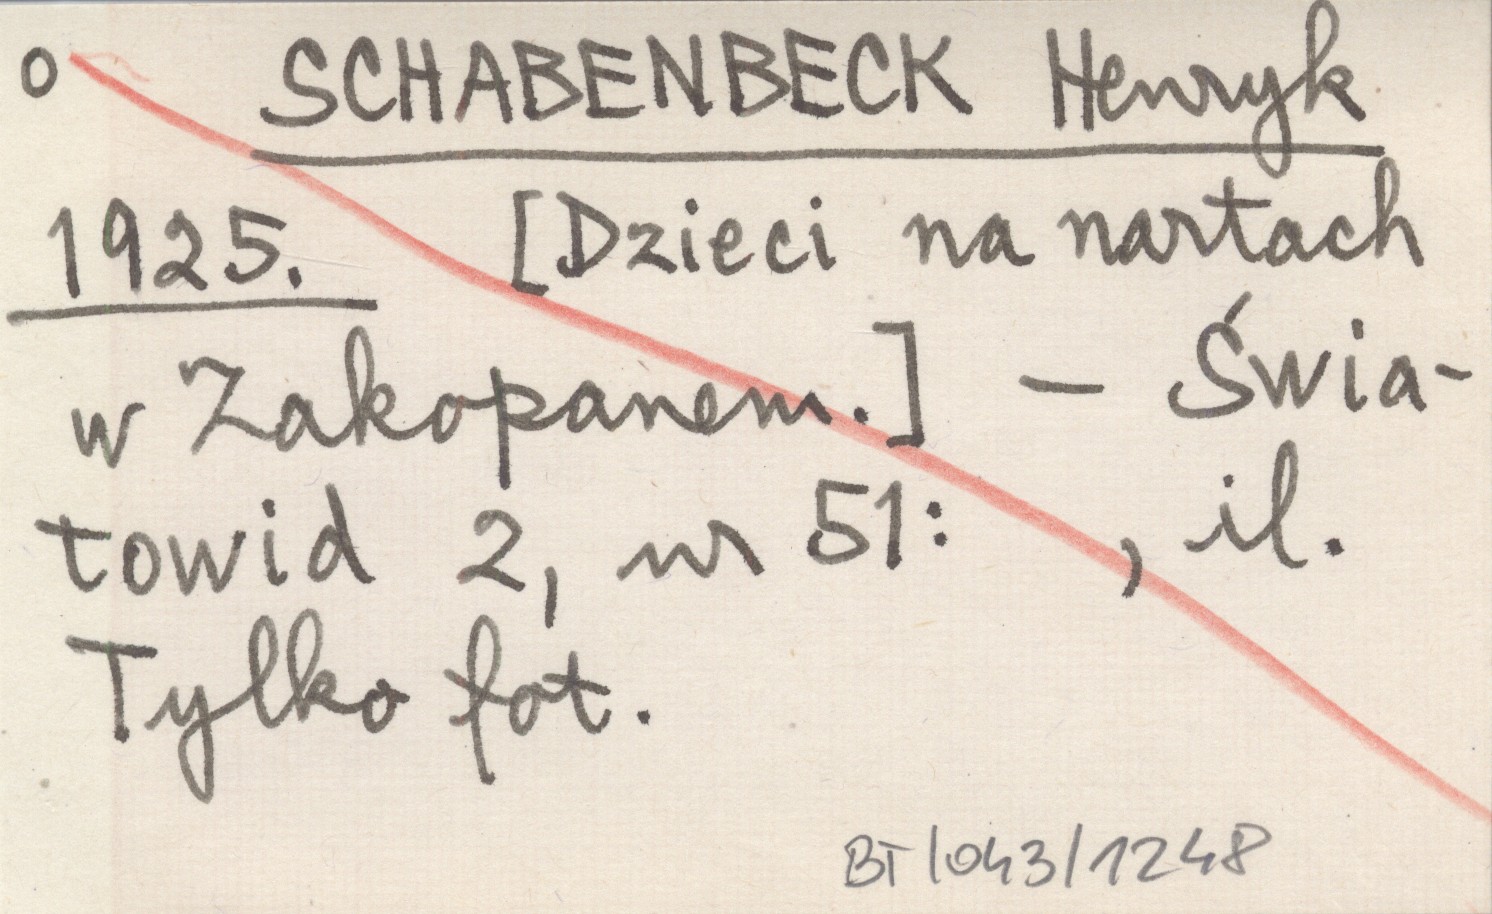 o SCHABENBECK Henryk
1925. [Dzieci na nartach
w Zakopanem.] – Świa-
towid 2, nr 51: , il.
Tylko fot.
BT/043/1248